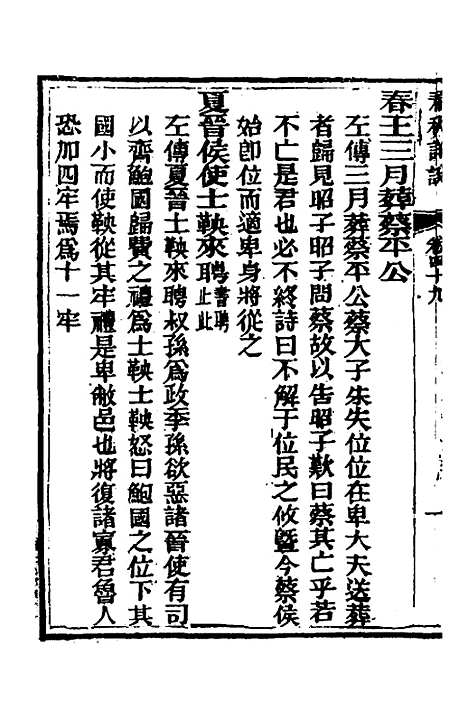 春秋講議 卷四十九 一
春王三月葬蔡平公
左傳三月葬蔡平公蔡大子朱失位位在卑大夫送葬
者歸見昭子昭子問蔡故以告昭子歎曰蔡其亡乎若
不亡是君也必不終詩曰不解于位民之攸曁今蔡侯
始卽位而適卑身將從之
夏晉侯使士鞅來聘書聘止此
左傳夏晉士鞅來聘叔孫爲政季孫欲惡諸晉使有司
以齊鮑國歸費之禮爲士鞅士鞅怒曰鮑國之位下其
國小而使鞅從其牢禮是卑敝邑也將復諸寡君魯人
恐加四牢焉爲十一牢